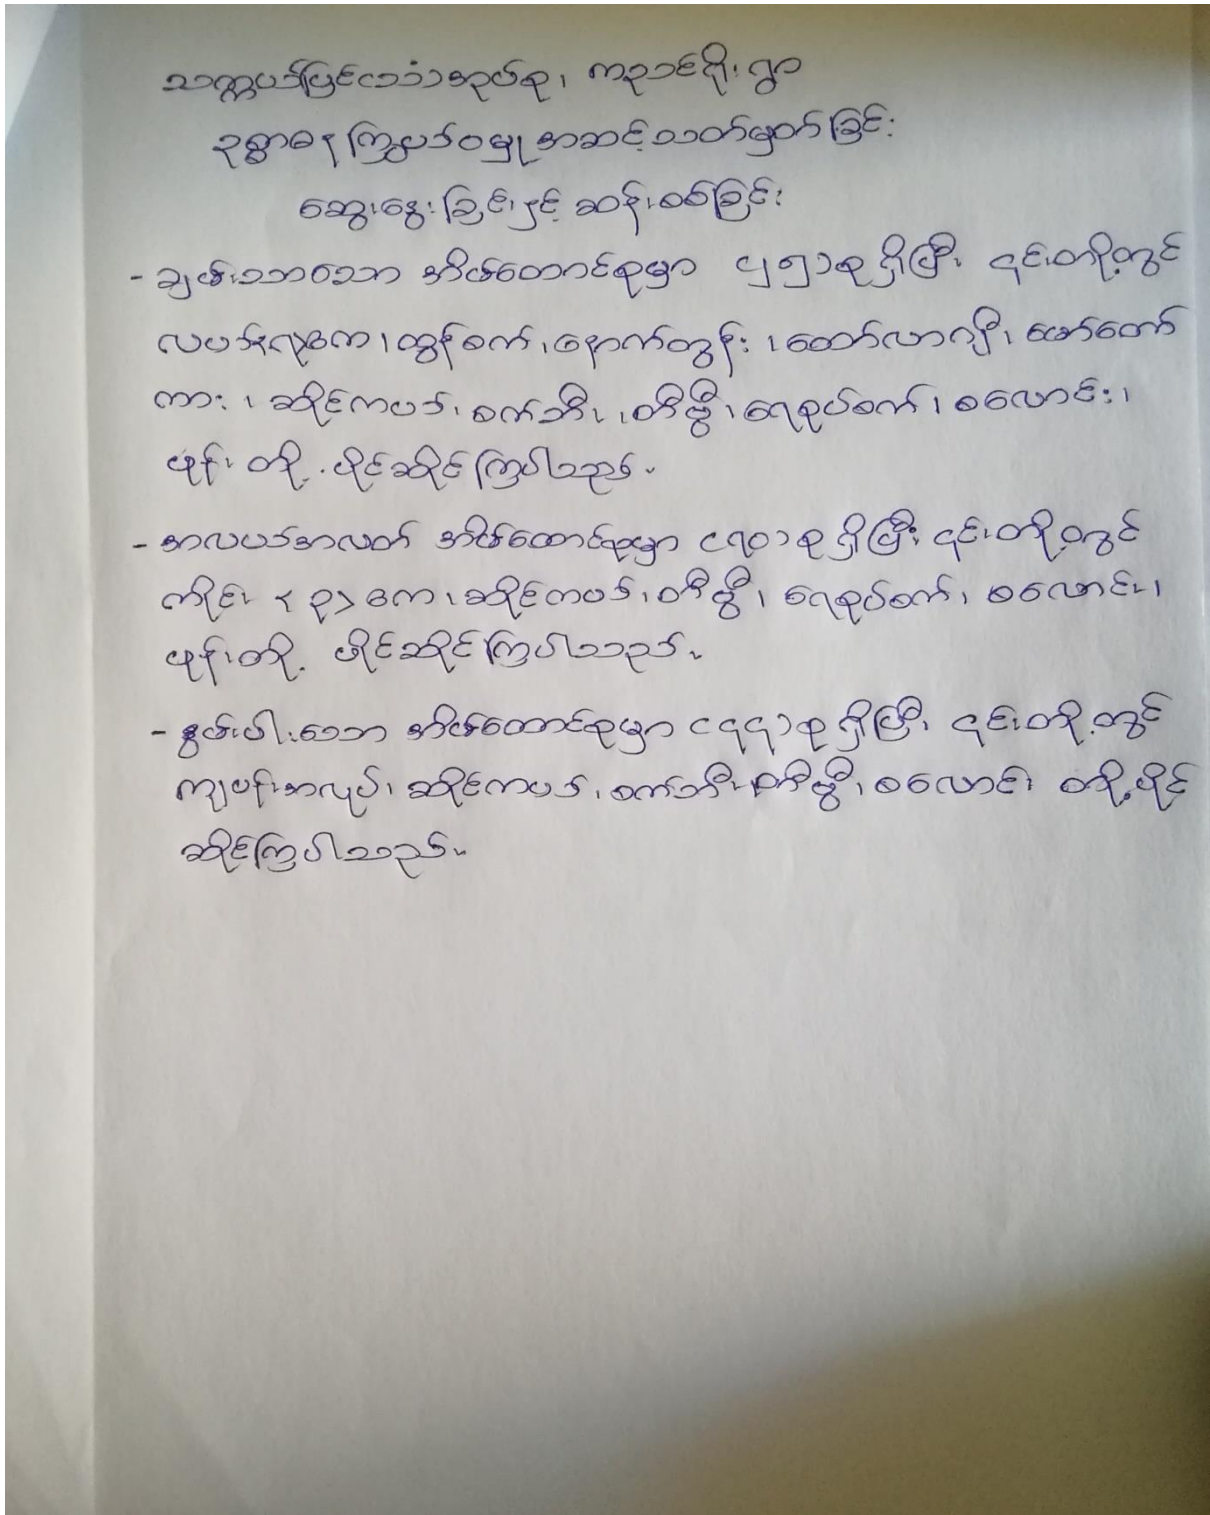 သက္ကယ်ပြင်သံအုပ်စု၊ ကညင်ငိုးရွာ
ဥစ္စာဓန ကြွယ်ဝမှု အဆင့်သတ်မှတ်ခြင်း
ဆွေးနွေးခြင်းနှင့် ဆန်းစစ်ခြင်း
- ချမ်းသာသော အိမ်ထောင်စုမှာ (၂၅) စု ရှိပြီး ၎င်းတို့တွင်
ထွန်စက်၊ နောက်တွန်း၊ တော်လာဂျီ၊ မော်တော်
ကား၊ ဆိုင်ကယ်၊ စက်ဘီး၊ တီဗွီ၊ ရေစုပ်စက်၊ စလောင်း၊
ဖုန်းတို့ ပိုင်ဆိုင်ကြပါသည်။
- အလယ်အလတ် အိမ်ထောင်စုမှာ (၇၀) စု ရှိပြီး ၎င်းတို့တွင်
ကိုင်း (၃) ဧက၊ ဆိုင်ကယ်၊ တီဗွီ၊ ရေစုပ်စက်၊ စလောင်း၊
ဖုန်းတို့ ပိုင်ဆိုင်ကြပါသည်။
- နွမ်းပါးသော အိမ်ထောင်စုမှာ (၄၄) စု ရှိပြီး ၎င်းတို့တွင်
ကျပန်းအလုပ်၊ ဆိုင်ကယ်၊ စက်ဘီး၊ တီဗွီ၊ စလောင်း တို့ ပိုင်
ဆိုင်ကြပါသည်။